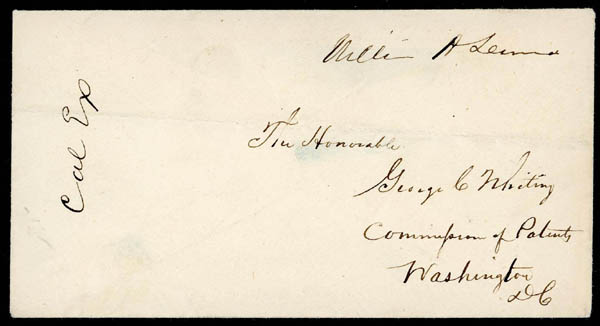 The Honorable
George C Whiting
Commission of Patents
Washington
DC
Cal Ex